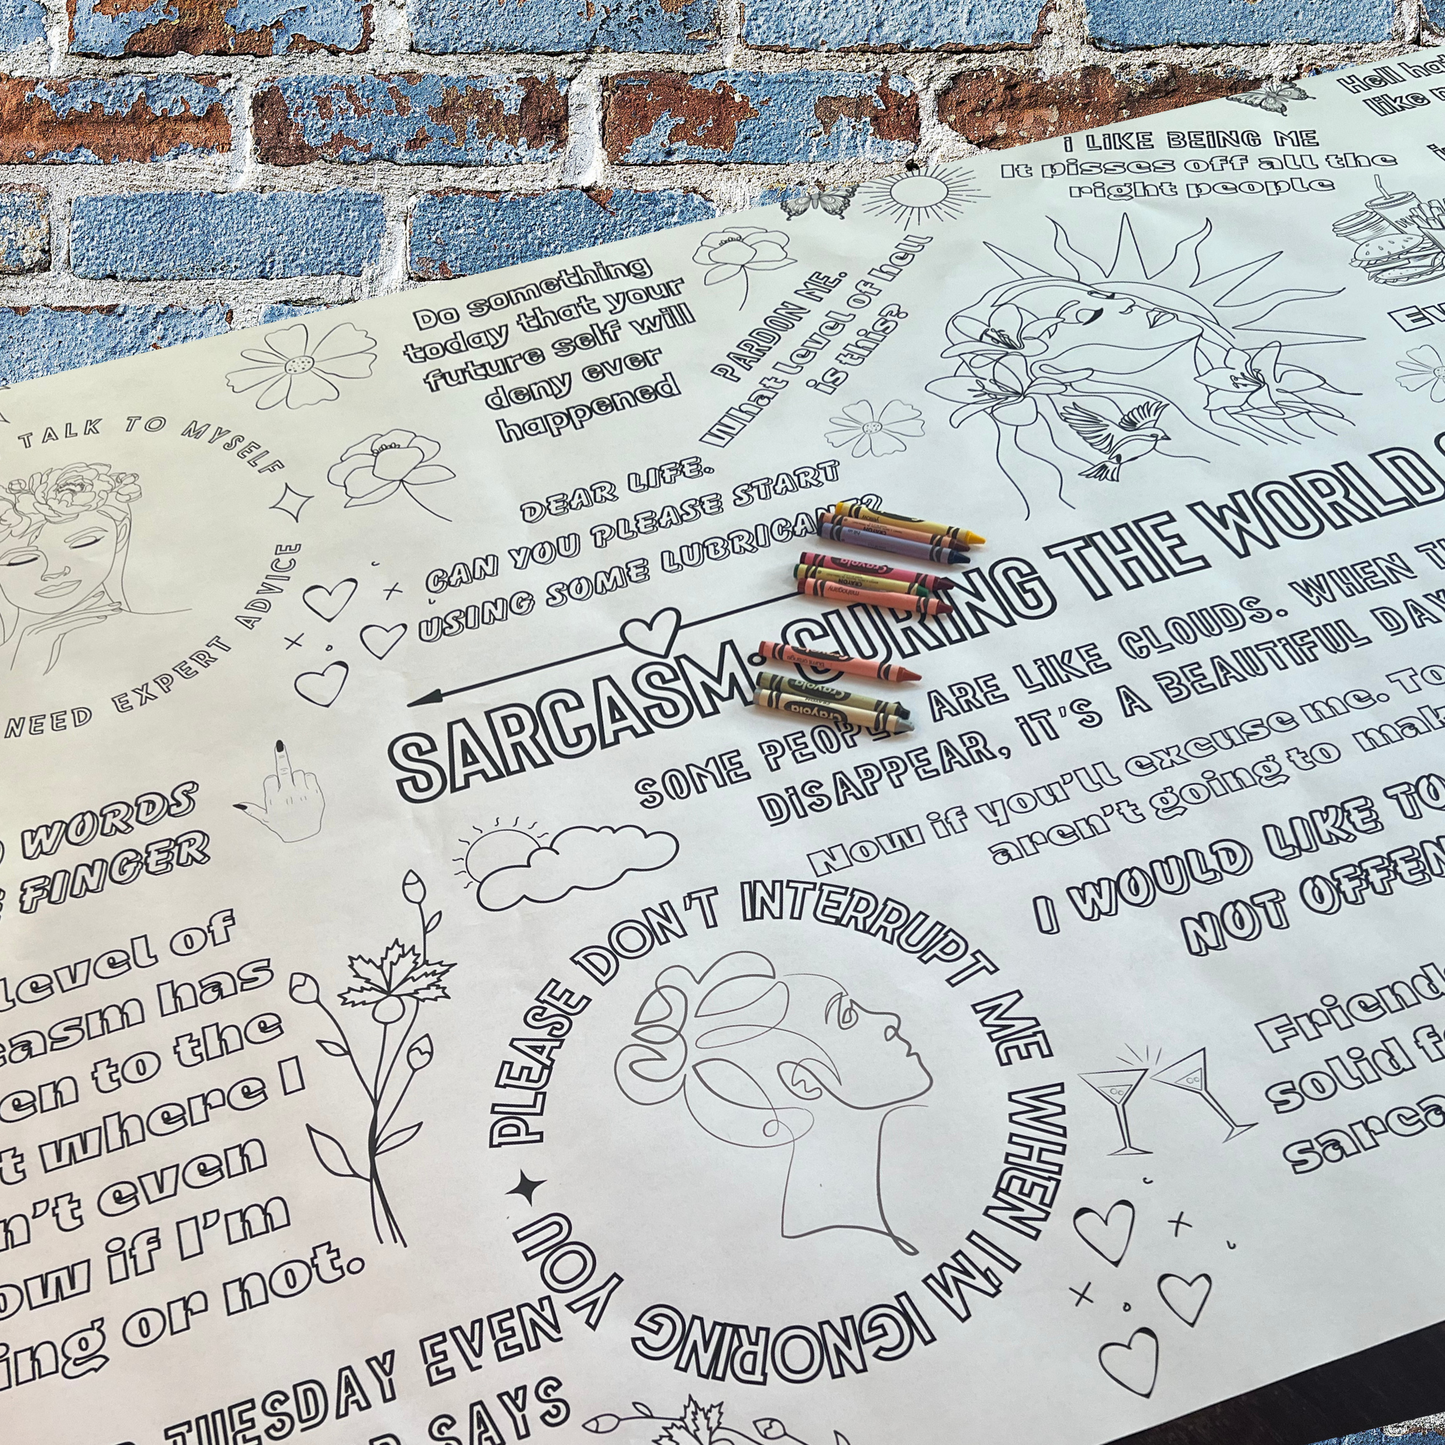 Hell
like
i LIKE BEING ME
It pisses off all the
right people
Do something
today that your
future self will
deny ever
happened
PARDON ME.
What level of hell
is this?
TALK TO MYSELF
NEED EXPERT ADVICE
DEAR LIFE.
CAN YOU PLEASE START
USING SOME LUBRICANT?
SARCASM: CURING THE WORLD
SOME PEOPLE ARE LIKE CLOUDS. WHEN
DISAPPEAR, iT'S A BEAUTIFUL DAY
Now if you'll excuse me. To
aren't going to
I WOULD LIKE TO
NOT
WORDS
FINGER
level of
has
to the
where I
even
if I'm
or not.
PLEASE DON'T INTERRUPT ME WHEN I'M IGNORING YOU
solid
TUESDAY EVEN
SAYS
Crayola
Crayola
Crayola